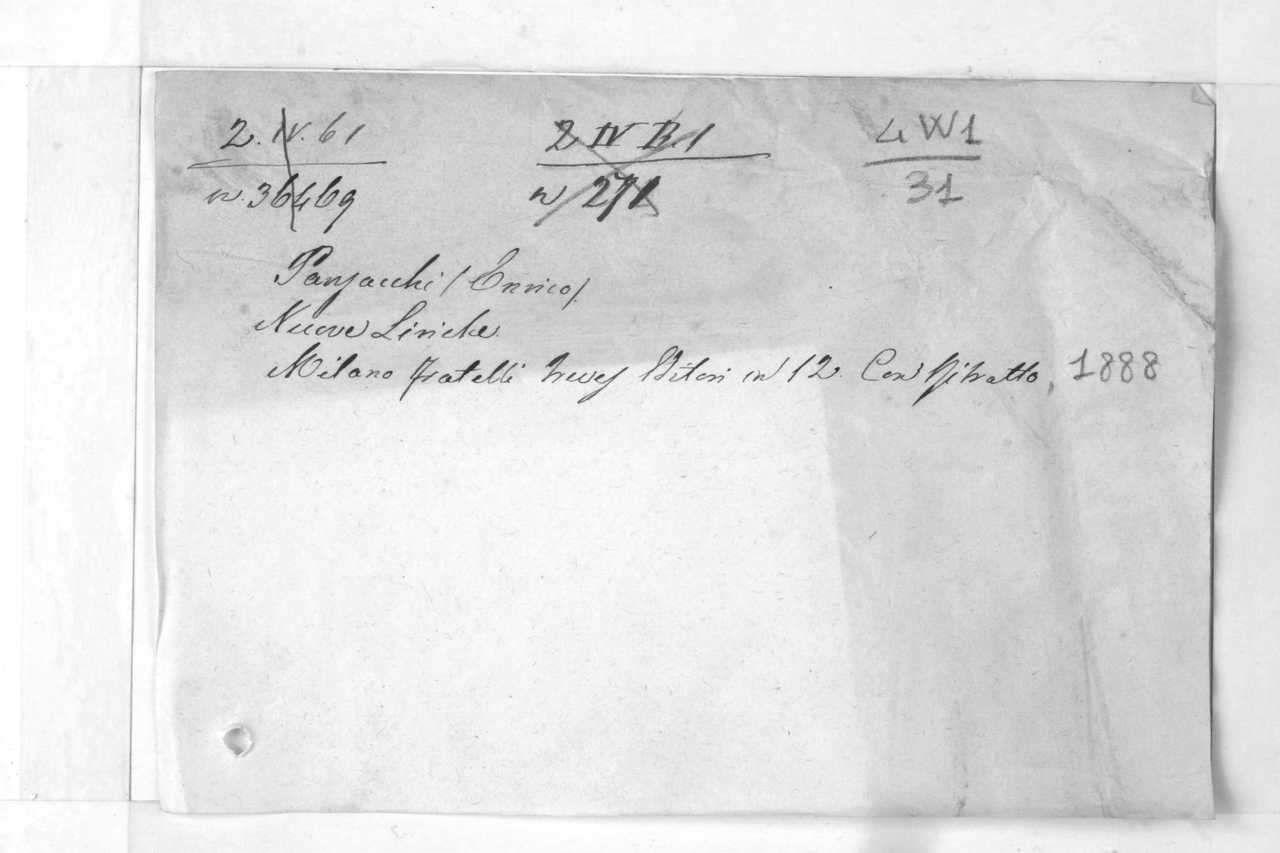 2. IV. 61
n. 36469
2 IV B. 1
n 271
4 W1
31
Panzacchi (Enrico)
Nuove Liriche
Milano Fratelli Treves Editori in 12. Con Ritratto, 1888